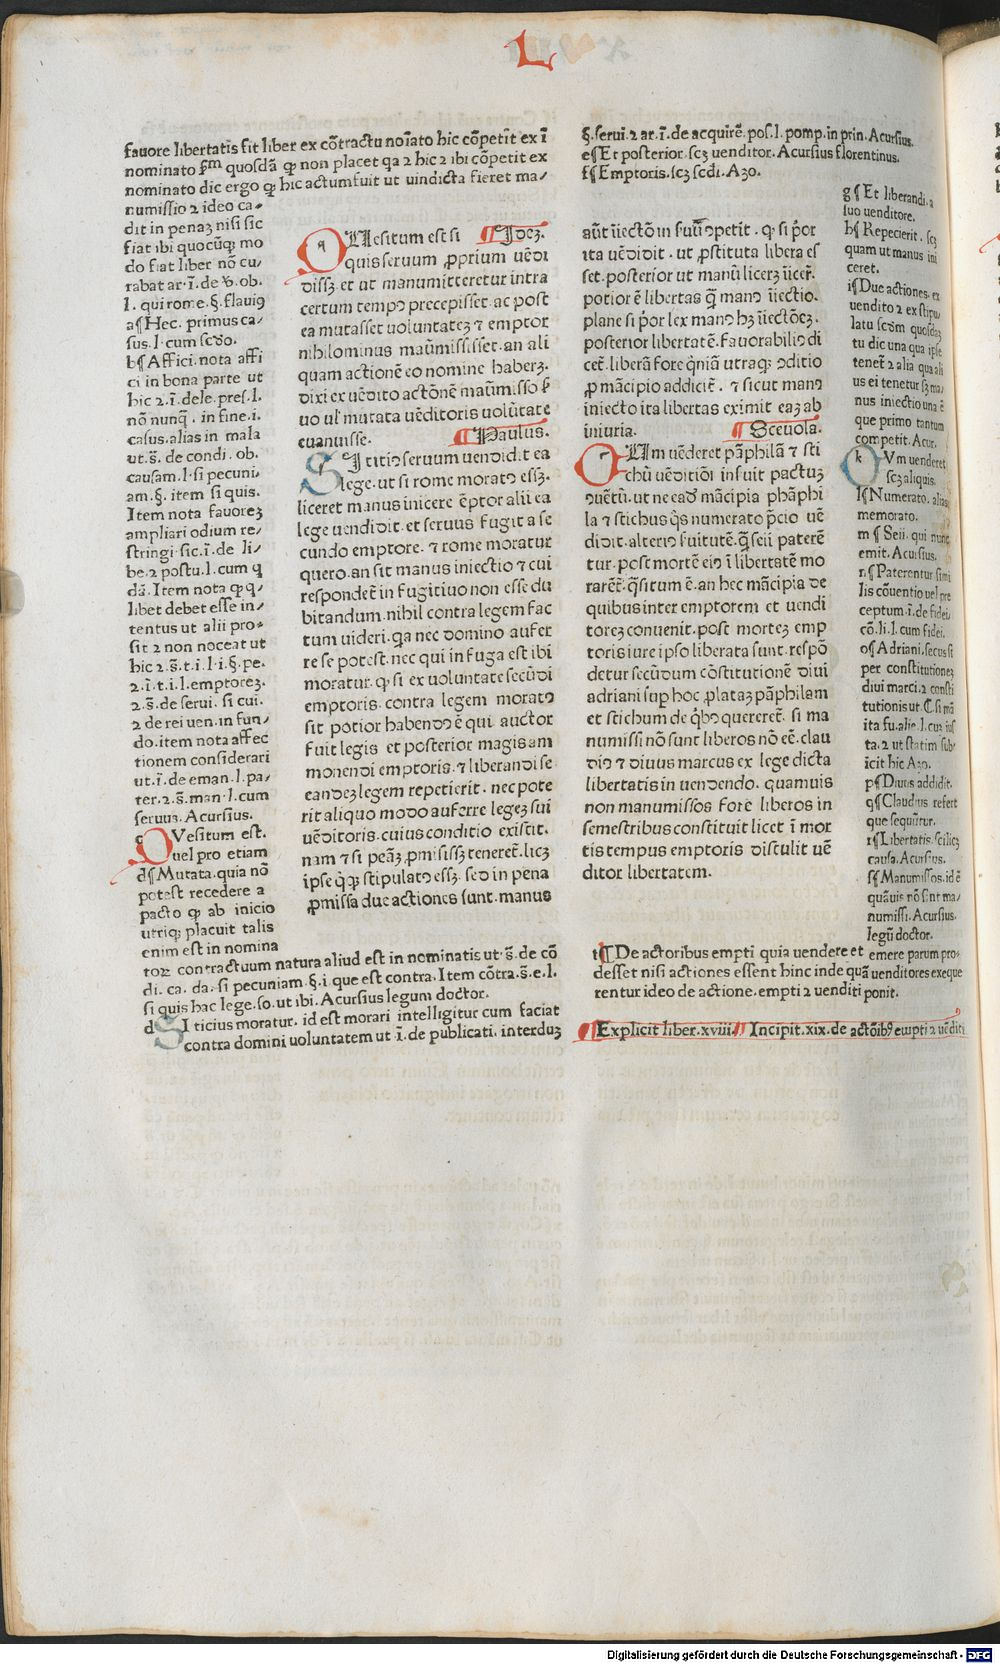 L
fauore libertatis fit liber ex cõtractu noĩato hic cõpetit ex ĩ
nominato quosdã ꝙ non placet qa ⁊ hic ⁊ ibi cõpetit ex
nominato dic ergo ꝙ hic actum fuit ut uindicta fieret ma/
numissio ⁊ ideo ca/
dit in penaȝ nisi sic
fiat ibi quocũqȝ mo
do fiat liber nõ cu/
rabat ar. ĩ. de ob.
l. qui rome. §. flauiꝰ
a¶ Hec. primus ca/
sus. l. cum
b¶ Affici. nota affi
ci in bona parte ut
hic ⁊. ĩ. de le. pres. l.
nõ nunq̃. in fine. i.
casus. alias in mala
ut. s̃. de condi. ob.
causam. l. si pecuni.
am. §. item si quis.
Item nota fauoreȝ
ampliari odium re/
stringi. sic. ĩ. de li/
be. ⁊ postu. l. cum q
dã. Item nota ꝙ q/
libet debet esse in/
tentus ut alii pro/
sit ⁊ non noceat ut
hic ⁊. s̃. t. i. l. i. §. pe.
⁊. ĩ. t. i. l. emptoreȝ.
⁊. s̃. de serui. si cui.
⁊ de rei uen. in fun/
do. item nota affec
tionem considerari
ut. ĩ. de eman. l. pa/
ter. ⁊. s̃. man. l. cum
seruus. Acursius.
c QVesitum est.
uel pro etiam
d¶ Mutata. quia nõ
potest recedere a
pacto ꝙ ab inicio
utriqȝ placuit talis
enim est in nomina
toꝝ contractuum natura aliud est in nominatis ut. s̃. de cõ
di. ca. da. si pecuniam. §. i. que est contra. Item cõtra. s̃. e. l.
si quis hac lege. so. ut ibi. Acursius legum doctor.
d SI ticius moratur. id est morari intelligitur cum faciat
contra domini voluntatem ut. ĩ. de publicati. interduȝ
QUesitum est si ¶ Ideȝ.
quis seruum ꝓprium uẽdi
disȝ. et ut manumitteretur intra
certum tempꝰ precepisset. ac post
ea mutasset uoluntateȝ ⁊ emptor
nihilominus maũmisisset. an ali
quam actionẽ eo nomine haberȝ.
dixi ex uẽdito actõnẽ maũmisso
uo ul' mutata uẽditoris uolũtate
euanuisse. ¶ Paulus.
SI titiꝰ seruum uendidit ea
lege. ut si rome moratꝰ essȝ.
liceret manus inicere ẽptor alii ea
lege uendidit. et seruus fugit a se
cundo emptore. ⁊ rome moratur
quero. an sit manus iniectio ⁊ cui
respondet̃ in fugitiuo non esse du
bitandum. nihil contra legem fac
tum uideri. qa nec domino aufer
re se potest. nec qui in fuga est ibi
moratur. ꝙ si ex uoluntate secũdi
emptoris. contra legem moratꝰ
sit potior habendꝰ ẽ qui. auctor
fuit legis et posterior magis am
monendi emptoris. ⁊ liberandi se
eandeȝ legem repetierit. nec pote
rit aliquo modo auferre legeȝ sui
uẽditoris. cuius conditio existit.
nam ⁊ si peãȝ ꝓmisissȝ teneret̃. licȝ
ipse stipulatꝰ essȝ. sed in pena
ꝓmissa due actiones sunt. manus
§. serui. ⁊ ar. ĩ. de acquirẽ. pos. l. pomp. in prin. Acursius.
e¶ Et posterior. scȝ uenditor. Acursius florentinus.
f¶ Emptoris. scȝ Azo.
aũt ĩiectõ in ꝯpetit. q. si p̃or
ita uẽdidit. ut ꝓstituta libera es
set. posterior ut manũ licerȝ
potior ẽ libertas q̃ manꝰ ĩiectio.
plane si p̃or lex manꝰ hȝ ĩiectõeȝ.
posterior libertatẽ. fauorabiliꝰ di
cet̃. liberã fore utraqȝ ꝯditio
ꝓ mãcipio addicit̃. ⁊ sicut manꝰ
iniecto ita libertas eximit eaȝ ab
iniuria. ¶ Sceuola.
CUm uẽderet pãphilã ⁊ sti
chũ uẽditiõi insuit pactuȝ
ꝯuẽtũ. ut ne eadẽ mãcipia phãphi
la ⁊ stichus q̃s numerato p̃cio uẽ
didit. alteriꝰ suitutẽ. q̃ seii paterẽ
tur. post mortẽ eiꝰ ĩ libertatẽ mo
rarẽt̃. q̃situm ẽ. an hec mãcipia de
quibus inter emptorem et uendi
toreȝ conuenit. post morteȝ emp
toris iure ipso liberata sunt. respõ
detur secũdum cõstitutionẽ diui
adriani sup hoc ꝓlataȝ pãphilam
et stichum de q̃bꝰ quereret̃. si ma
numissi nõ sunt liberos nõ eẽ. clau
diꝰ ⁊ diuus marcus ex lege dicta
libertatis in uendendo. quamuis
non manumissos fore liberos in
semestribus constituit licet ĩ mor
tis tempus emptoris distulit uẽ
ditor libertatem.
g¶ Et liberandi. a
suo uenditore.
h¶ Repecierit. scȝ
quam ut manus ini
ceret.
i¶ Due actiones. ex
uendito ⁊ ex stipu/
latu quosdaȝ
tu dic una qua ipse
tenet̃ ⁊ alia qua ali
us ei tenetur sȝ ma/
nus iniectio una ẽ
que primo tantum
competit. Acur.
k CVm uenderet
scȝ aliquis.
l¶ Numerato. alias
memorato.
m¶ Seii. qui nunc
emit. Acursius.
n¶ Paterentur simi
lis cõuentio uel pre
ceptum. ĩ. de fidei.
cõ. li. l. cum fidei.
o¶ Adriani. secus si
per constitutioneȝ
diui marci. ⁊ consti
tutionis ut. C. si mã
ita fu. alie. l. cuȝ ius
ta. ⁊ ut statim sub
icit hic Azo.
p¶ Diuus addidit.
q¶ Claudius refert
que sequũtur.
r¶ Libertatis. scilicȝ
causa. Acursius.
s¶ Manumissos. id ẽ
quãuis nõ sint ma/
numissi. Acursius.
legũ doctor.
t¶ De actoribus empti quia uendere et emere parum pro/
desset nisi actiones essent hinc inde quã uenditores exeque
rentur ideo de actione. empti ⁊ uenditi ponit.
¶ Explicit liber. xviii. ¶ Incipit. xix. de actõibꝰ empti ⁊ uẽditi
Digitalisierung gefördert durch die Deutsche Forschungsgemeinschaft - DFG